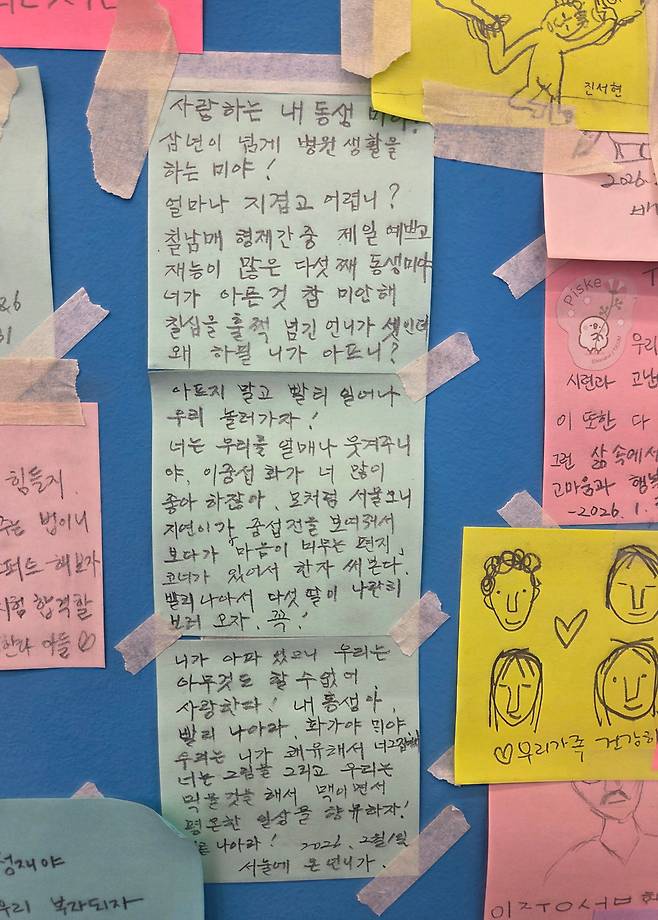 진서현
사랑하는 내 동생 미야.
삼년이 넘게 병원생활을
하는 미야!
얼마나 지겹고 어렵니?
칠남매 형제간 중 제일 예쁘고
재능이 많은 다섯째 동생미야
너가 아픈것 참 미안해
칠십을 훌쩍 넘긴 언니가 셋인데
왜 하필 니가 아프니?
아프지 말고 빨리 일어나
우리 놀러가자!
너는 우리를 얼매나 웃겨주니
야, 이중섭 화가 너 많이
좋아 하잖아. 모처럼 서울오니
지연이가 중섭전을 보여줘서
보다가 「마음이 머무는 편지」
코너가 있어서 한자 써 본다.
빨리나아서 다섯 딸이 나란히
보러 오자. 꼭!
니가 아파 있으니 우리는
아무것도 할 수 없어
사랑한다! 내 동생아,
빨리 나아라. 화가야 미야.
우리는 니가 쾌유해서
너는 그림을 그리고 우리는
먹을것을 해서 맥이면서
평온한 일상을 향유하자!
나아라! 2026. 2월1일
서울에 온 언니가.
2026.
Piske
우리
시련과 고난
이 또한 다
그런 삶 속에서
고마움과 행복
-2026. 1.
♡우리가족 건강하
힘들지.
주는 법이니
해보자
시험 합격할
아들♡
31
우리 부자되자